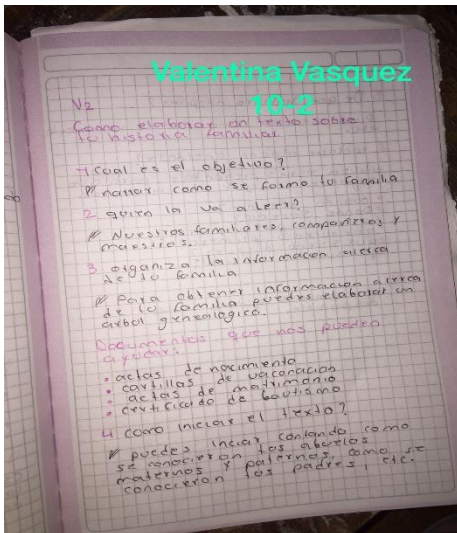 Valentina Vasquez
10-2
N2
Como elaborar un texto sobre
tu historia familiar
1 Cual es el objetivo?
narrar como se formo tu familia
2 quien la va a leer?
Nuestros familiares, compañeros y
maestros.
3 organiza la informacion acerca
de tu familia
Para obtener informacion acerca
de tu familia puedes elaborar un
arbol genealogico.
Documentos que nos pueden
ayudar:
• actas de nacimiento
• cartillas de vaconacion
• actas de matrimonio
• certificado de bautismo
4 como iniciar el texto?
puedes inciar contando como
se conocieron tos abuelos
maternos y paternos, como se
conocieron tos padres, etc.